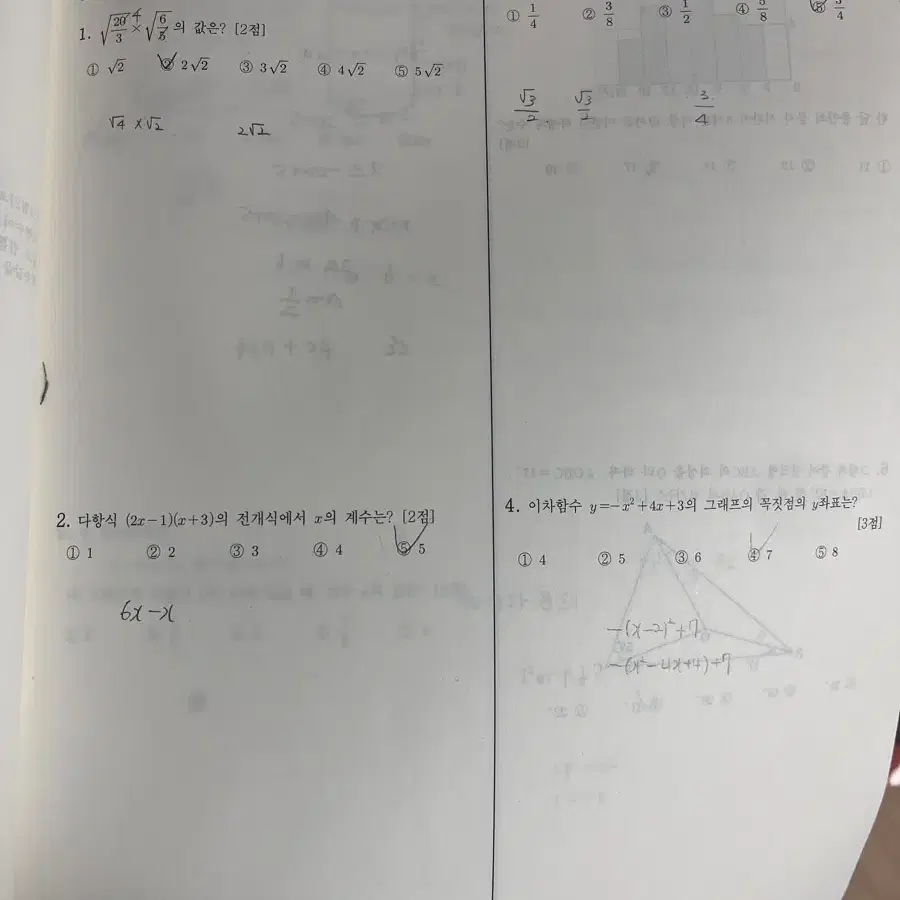 1. √20/3 × √6/5 의 값은? [2점]
4
① √2 ② 2√2 ③ 3√2 ④ 4√2 ⑤ 5√2
√4 × √2 2√2
2. 다항식 (2x-1)(x+3)의 전개식에서 x의 계수는? [2점]
① 1 ② 2 ③ 3 ④ 4 ⑤ 5
6x-x
① 1/4 ② 3/8 ③ 1/2 ④ 5/8 ⑤ 3/4
√3/2 √3/2 3/4
4. 이차함수 y=-x²+4x+3의 그래프의 꼭짓점의 y좌표는?
[3점]
① 4 ② 5 ③ 6 ④ 7 ⑤ 8
-(x-2)²+7
-(x²-4x+4)+7